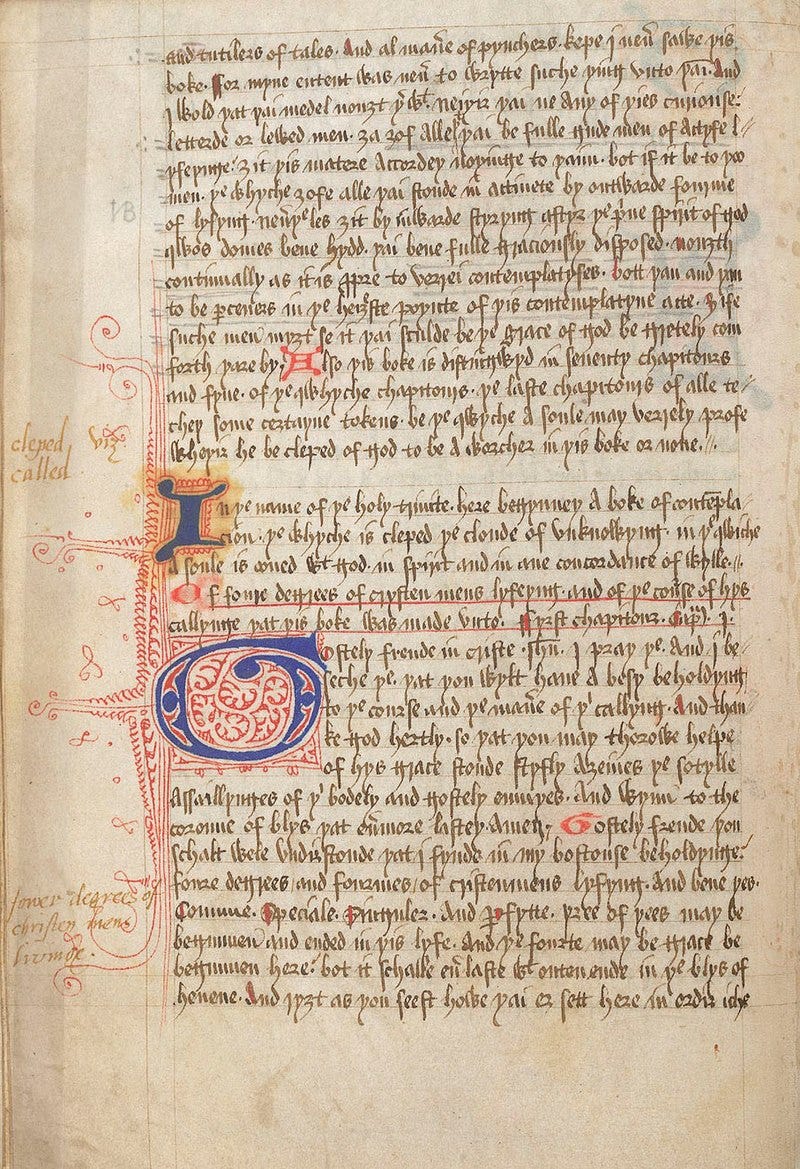 and tutilers of tales. And al man̄e of pynchers. kepe i nen̄ sawe þis
boke. For myne entent was nen̄ to wrytte suche þing vnto þāi. And
I wold þat þai medel nouȝt þ' wt. neiþir þai ne any of þies curiouse
letterde or lewed men. ȝa ȝof alle þai be fulle gude men of actyfe l
yfeynge. ȝit þis matere accordeþ noþinge to þaim. bot if it be to þoo
men. þe whyche ȝofe alle þai stonde in actiuete by outwarde fourme
of lyfyng. neu'þeles ȝit by inwarde styryng aftyr þe p'ue spirit of god
qwos domes bene hydd. þai bene fulle graciously disposed. nouȝth
continually as it is ppre to verrei contemplatyfes. bott þan and þan
to be ꝑceners in þe heiȝste poyncte of þis contemplatyue acte. ȝife
suche men myȝt se it þai schulde be þe grace of god be gretely com
forth þare by. Also þis boke is distingwyd in seuenty chapitours
and fyue. of þe qwhyche chapitours. þe laste chapitours of alle te
chep some certayne tokens. be þe qwyche a soule may verrely profe
wheþir he be cleped of god to be a worcher in þis boke or none.
cleped viz
called
In þe name of þe holy trinite. here begynneþ a boke of contēpla
cion. þe whyche is cleped þe cloude of vnknowyng. in þe qwiche
a soule is oned wt god. in spirit and in ane concordance of wylle.
Of foure degrees of crysten mens lyfeyng. and of þe course of hys
callynge þat þis boke was made vnto. Fyrst chapitour. Cap̄. j.
Gostely frende in criste ihū. I pray þe. And i be
seche þe. þat þou wylt haue a besy beholdyng
to þe course and þe man̄e of þ' callyng. And than
ke god hertly. so þat þou may thorowe helpe
of hys grace stonde styfly aȝeines þe sotylle
Assaillynges of þ' bodely and gostely enmyes. And wynn to the
coroune of blys þat eu'more lasteþ. Amen. Gostely frende þou
schalt wele vndirstonde þat i fynde in my bostouse beholdynge
foure degrees and fourmes of cristenmens lyfyng. And bene þes.
Comune. Speciale. Singuler. And ꝑfytte. þree of þees may be
begunnen and ended in þis lyfe. And þe fourte may be grace be
begunnen here. bot it schalle eu' laste wt outen ende in þe blys of
heuene. And ryȝt as þou seest howe þai er sett here in ordir iche
fower degrees of
christen mens
livinge.